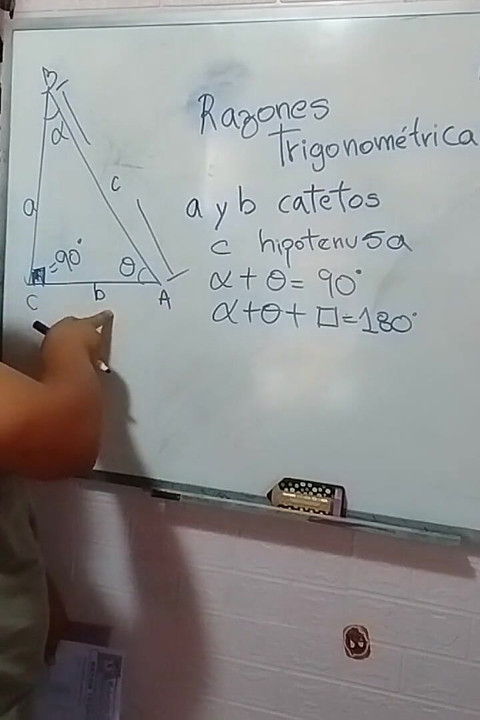 B
α
c
a
=90°
θ
C
b
A
Razones
Trigonométrica
a y b catetos
c hipotenusa
α + θ = 90°
α+θ+ □=180°